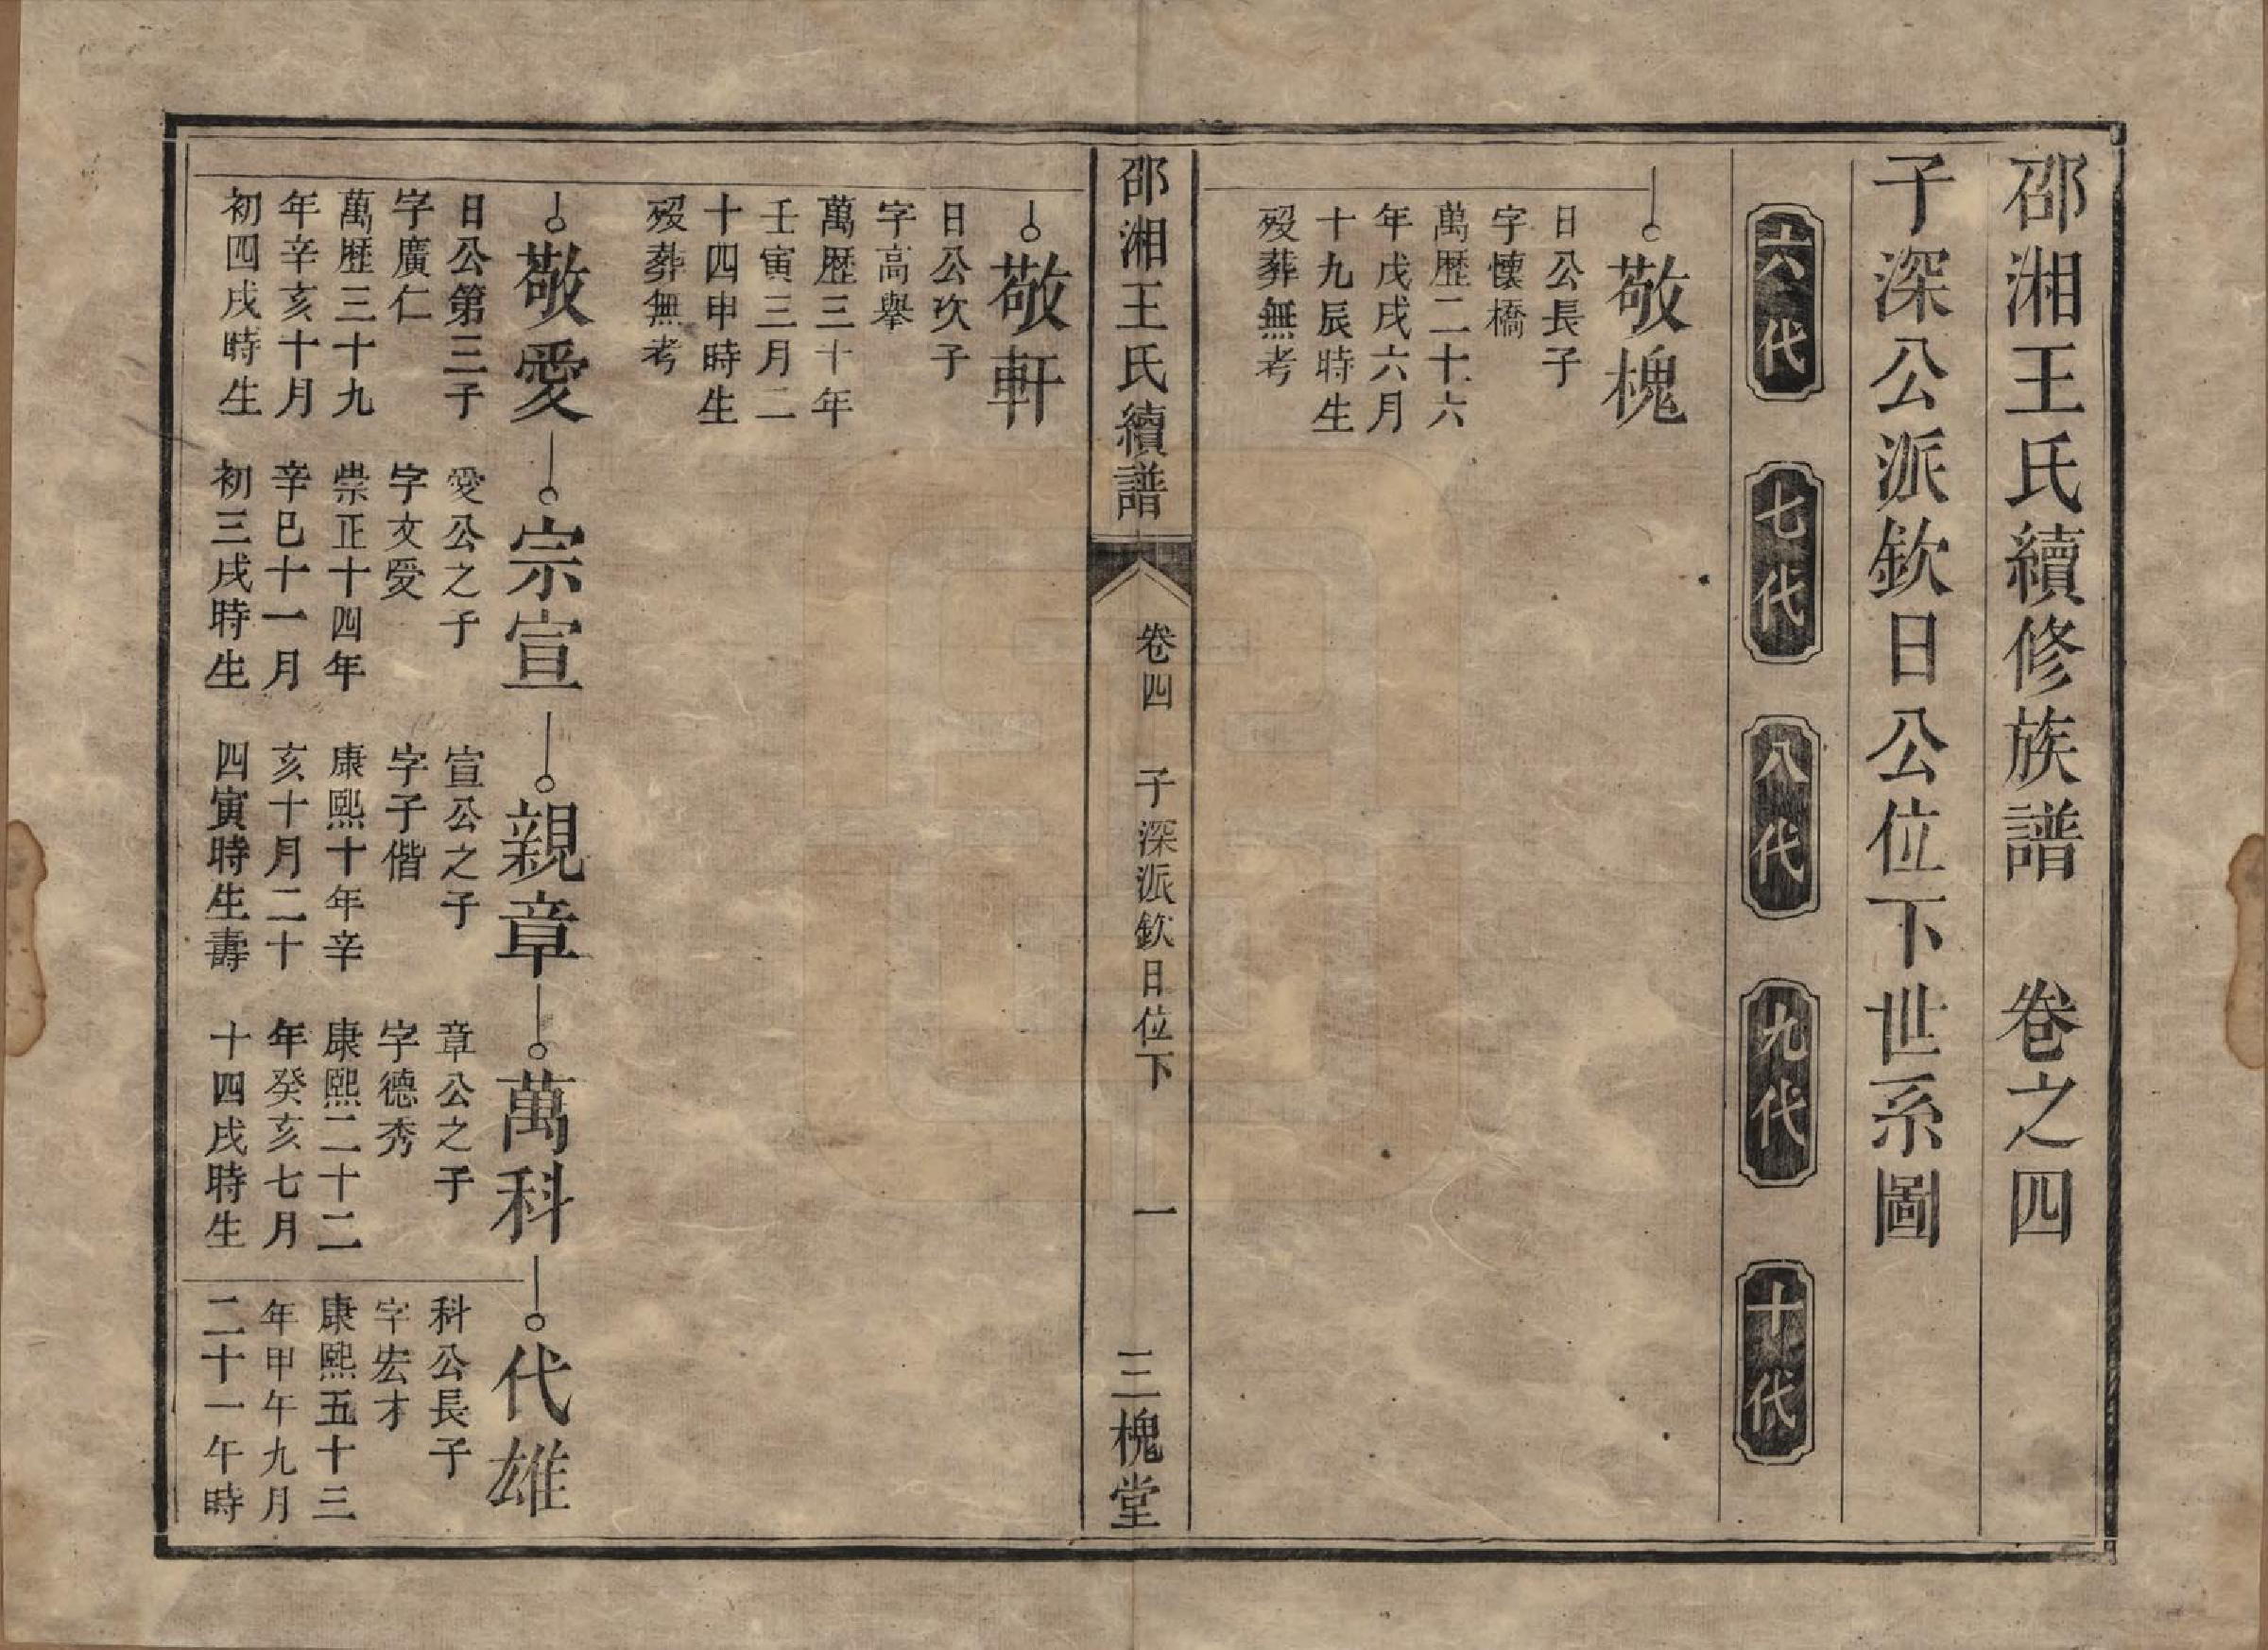 邵湘王氏續修族譜　卷之四
子深公派欽日公位下世系圖
六代
七代
八代
九代
十代
敬槐
日公長子
字懷橋
萬歷二十六
年戊戌六月
十九辰時生
歿葬無考
邵湘王氏續譜
卷四　子深派欽日位下
一
三槐堂
敬軒
日公次子
字高舉
萬歷三十年
壬寅三月二
十四申時生
歿葬無考
敬愛
日公第三子
字廣仁
萬歷三十九
年辛亥十月
初四戌時生
宗宣
愛公之子
字文受
崇正十四年
辛巳十一月
初三戌時生
親章
宣公之子
字子偕
康熙十年辛
亥十月二十
四寅時生壽
萬科
章公之子
字德秀
康熙二十二
年癸亥七月
十四戌時生
代雄
科公長子
字宏才
康熙五十三
年甲午九月
二十一午時